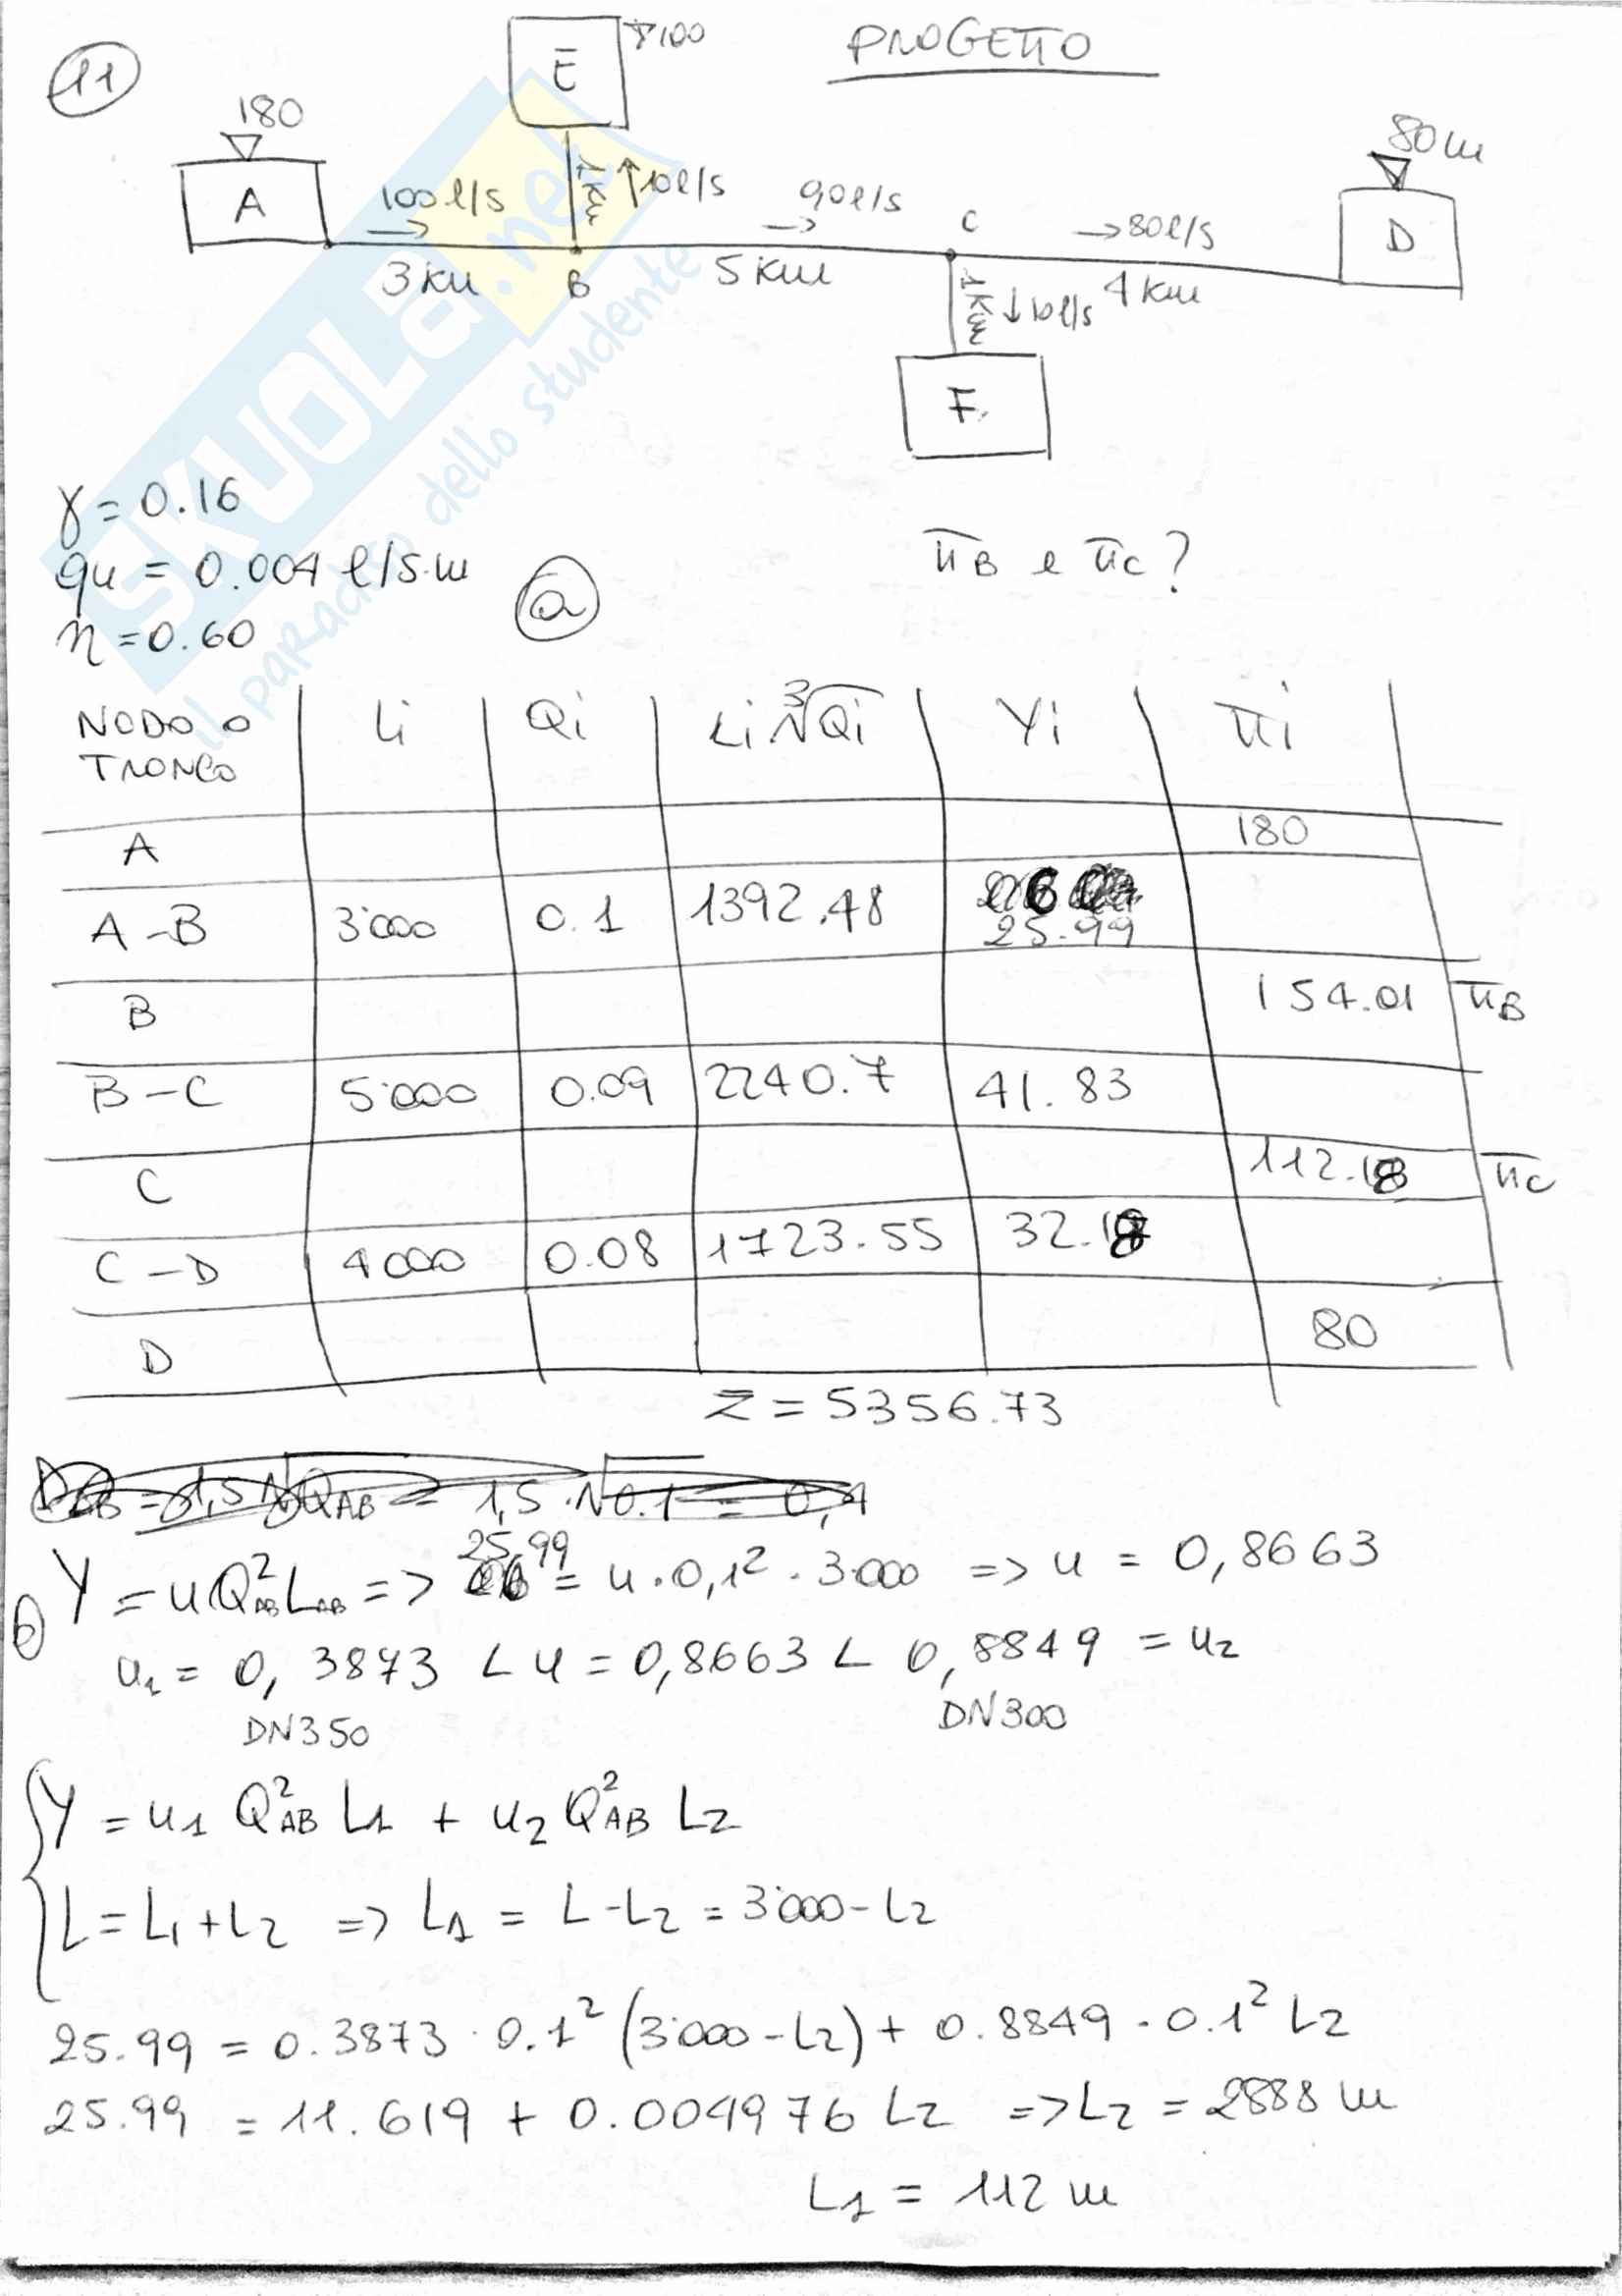 11
PROGETTO
E ▽100
180
A
80m
D
100 l/s →
1km ↑10l/s
90l/s →
C
→80l/s
3km
B
5km
1km ↓10l/s
4km
F
SKUOLA.net
il paradiso dello studente
γ = 0.16
qu = 0.004 l/s·m
η = 0.60
a
πB e πC?
NODO O TRONCO | Li | Qi | Li ∛Qi | Yi | πi
A | 180
A-B | 3'000 | 0.1 | 1392.48 | 25.99
B | 154.01 πB
B-C | 5'000 | 0.09 | 2240.7 | 41.83
C | 112.18 πC
C-D | 4000 | 0.08 | 1723.55 | 32.18
D | 80
Σ = 5356.73
DAB = 1,5 √QAB = 1,5 · √0.1 = 0,4
b) Y = u Q²AB LAB => 25.99 = u · 0,1² · 3000 => u = 0,8663
u1 = 0,3873 < u = 0,8663 < 0,8849 = u2
DN350 DN300
Y = u1 Q²AB L1 + u2 Q²AB L2
L = L1 + L2 => L1 = L - L2 = 3'000 - L2
25.99 = 0.3873 · 0.1² (3'000 - L2) + 0.8849 · 0.1² L2
25.99 = 11.619 + 0.004976 L2 => L2 = 2888 m
L1 = 112 m